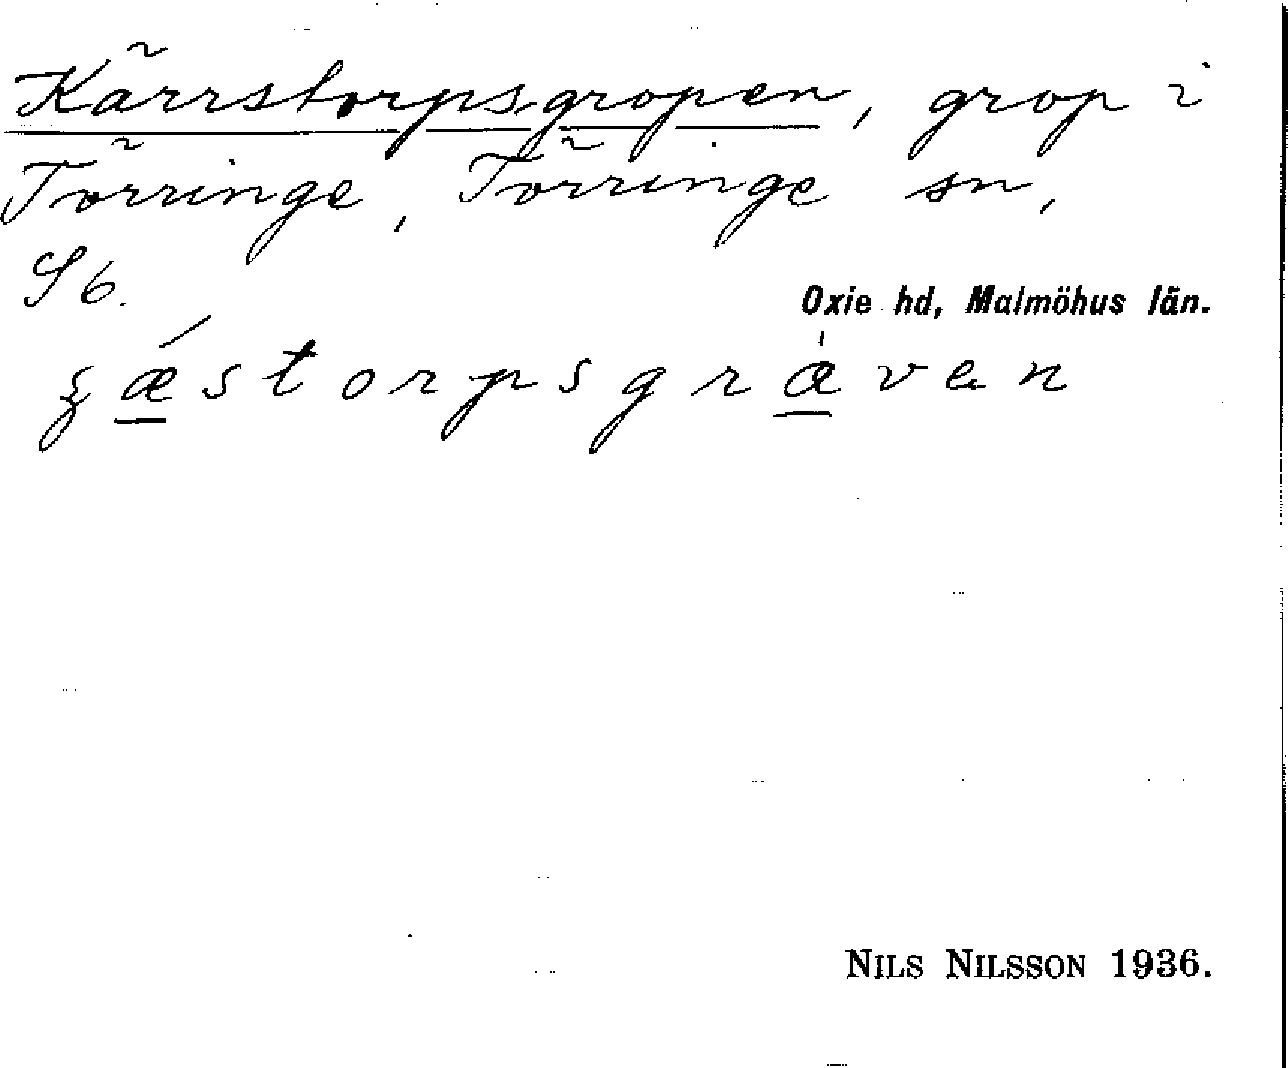 Kärrstorpsgropen, grop i
Törringe, Törringe sn,
S6.
Oxie hd, Malmöhus län.
NILS NILSSON 1936.